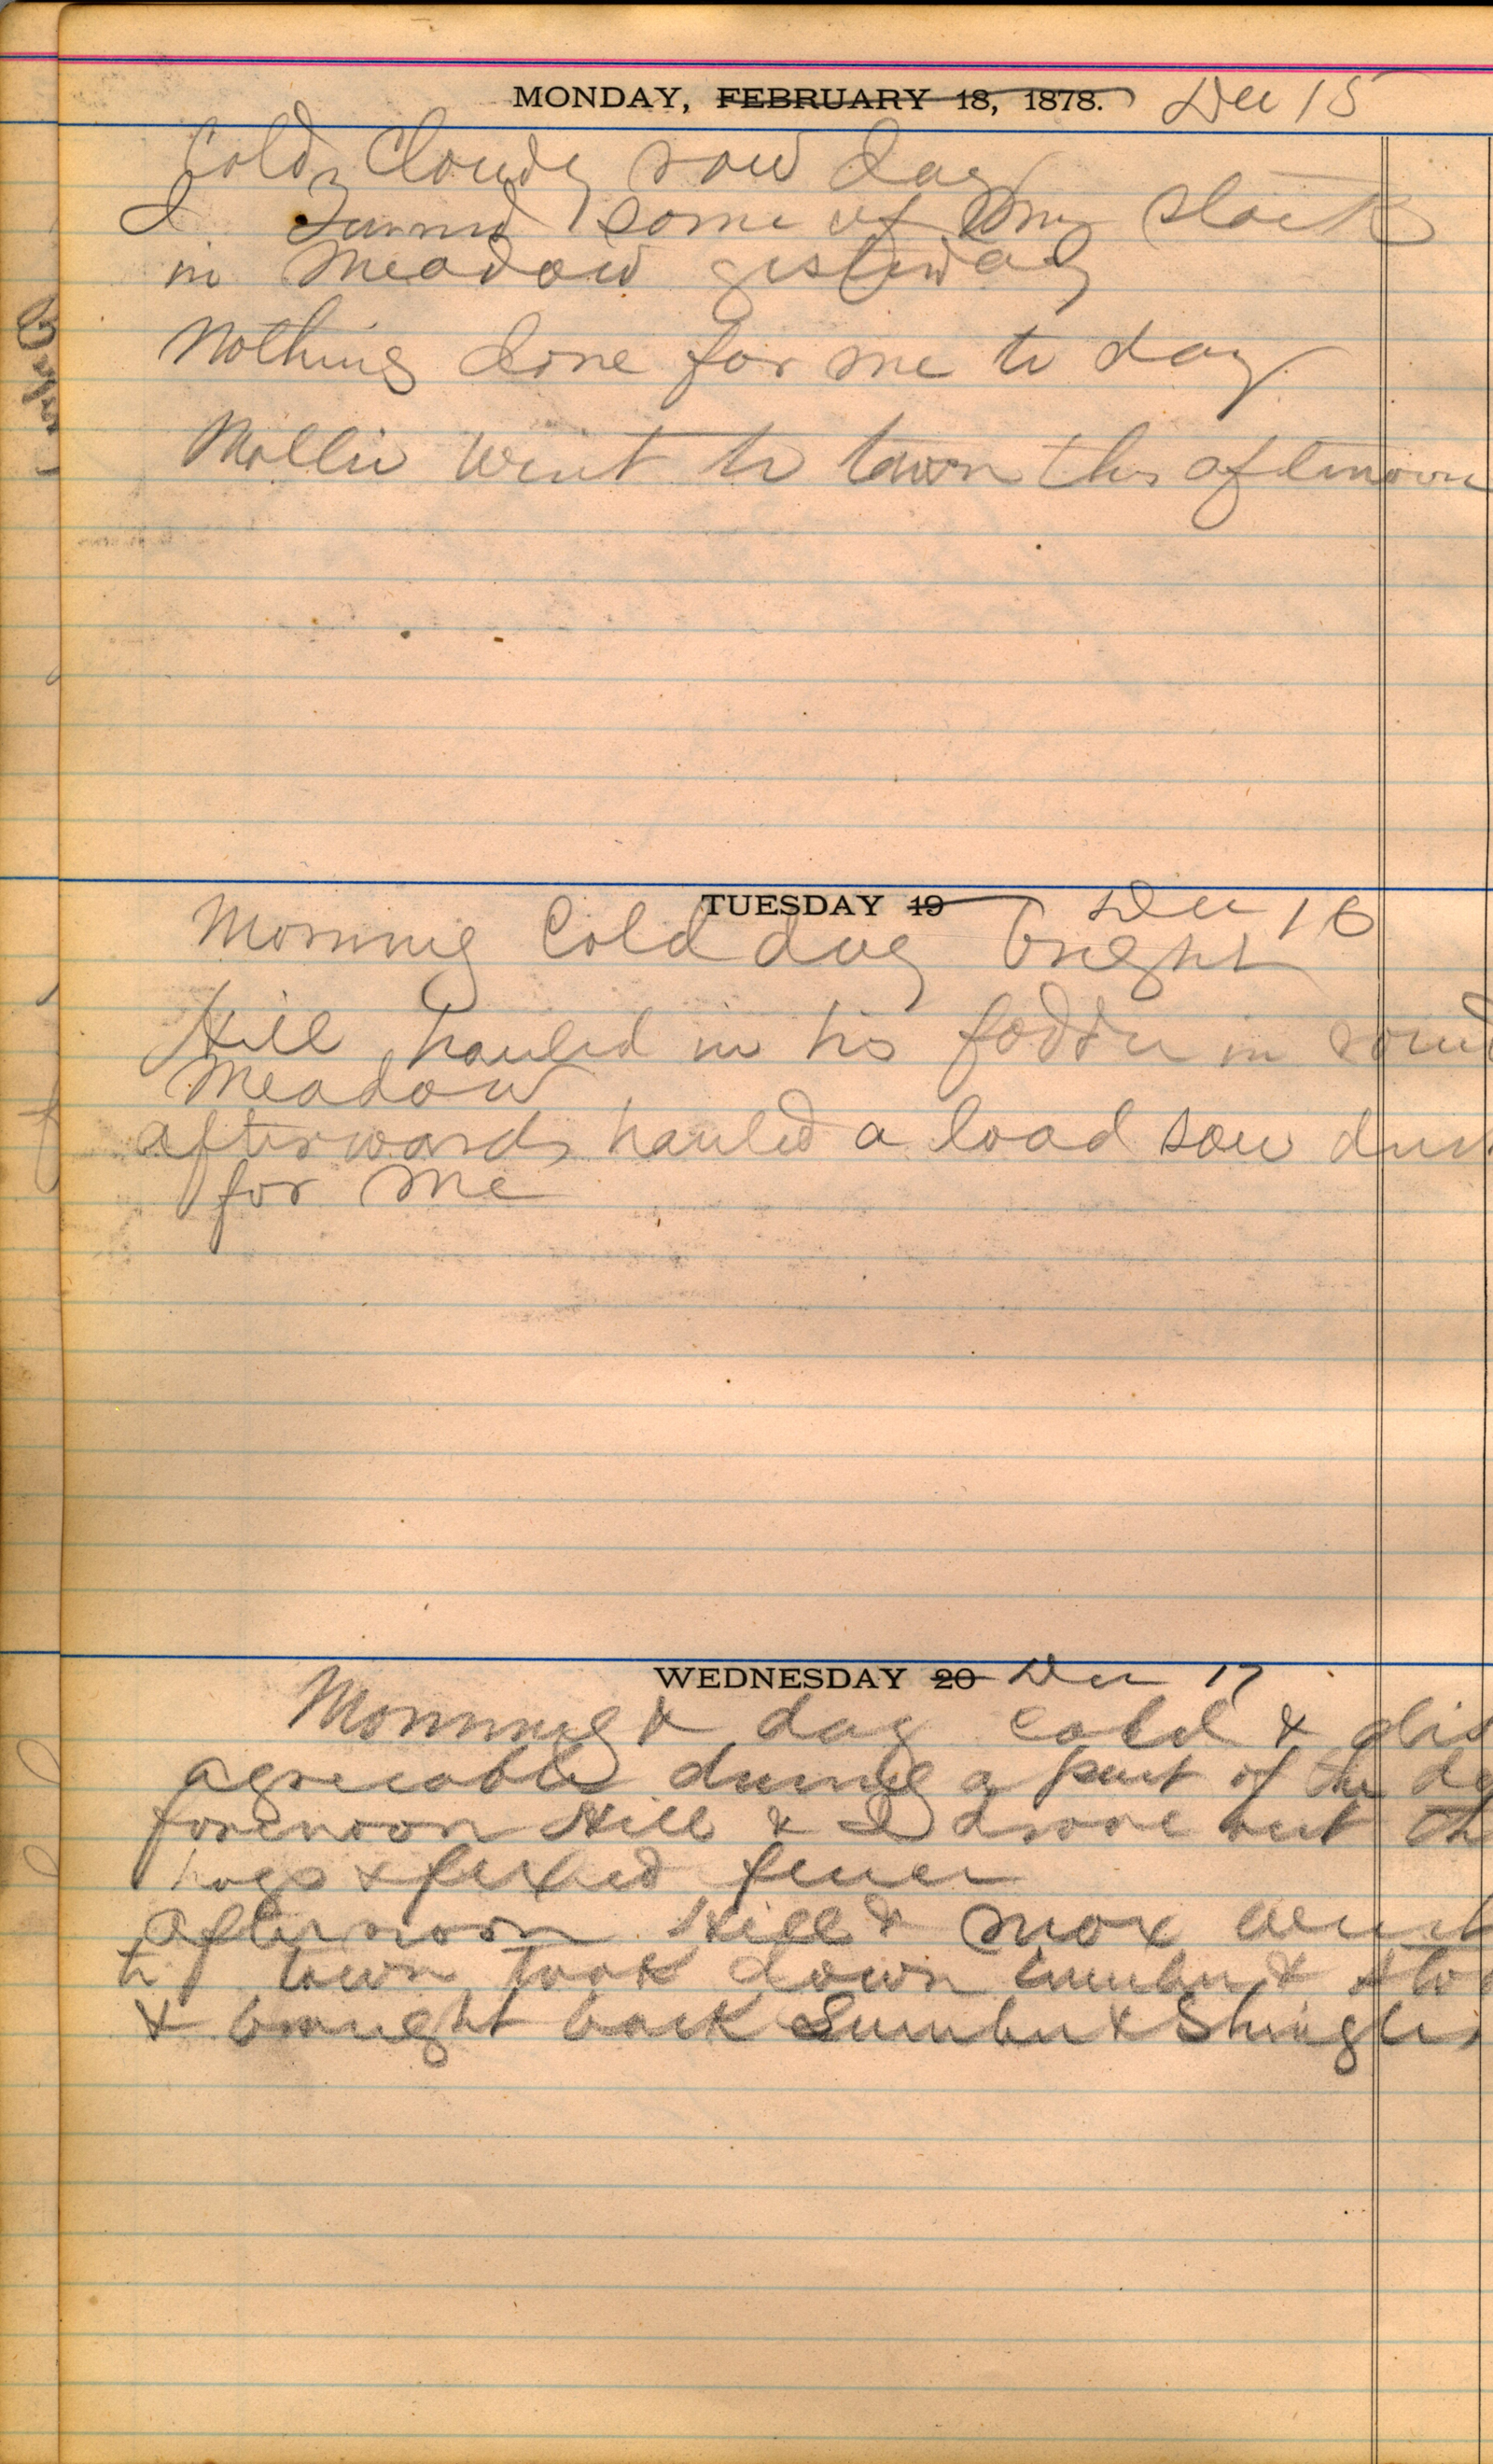 MONDAY, FEBRUARY 18, 1878. Dec 15
Cold Cloudy raw day
I Turned some of my stock
in Meadow yesterday
Nothing done for me to day
Mollie went to town this afternoon
TUESDAY 19 Dec 16
Morning Cold day bright
Hill hauled in his fodder in
Meadow
afterwards hauled a load saw dust
for me
WEDNESDAY 20 Dec 17
Morning & day cold & dis
agreeable during a part of the da
forenoon Hill & I drove out th
hogs & fixed fence
afternoon Hill & Max went
to town took down lumber &
& brought back Lumber & Shingles